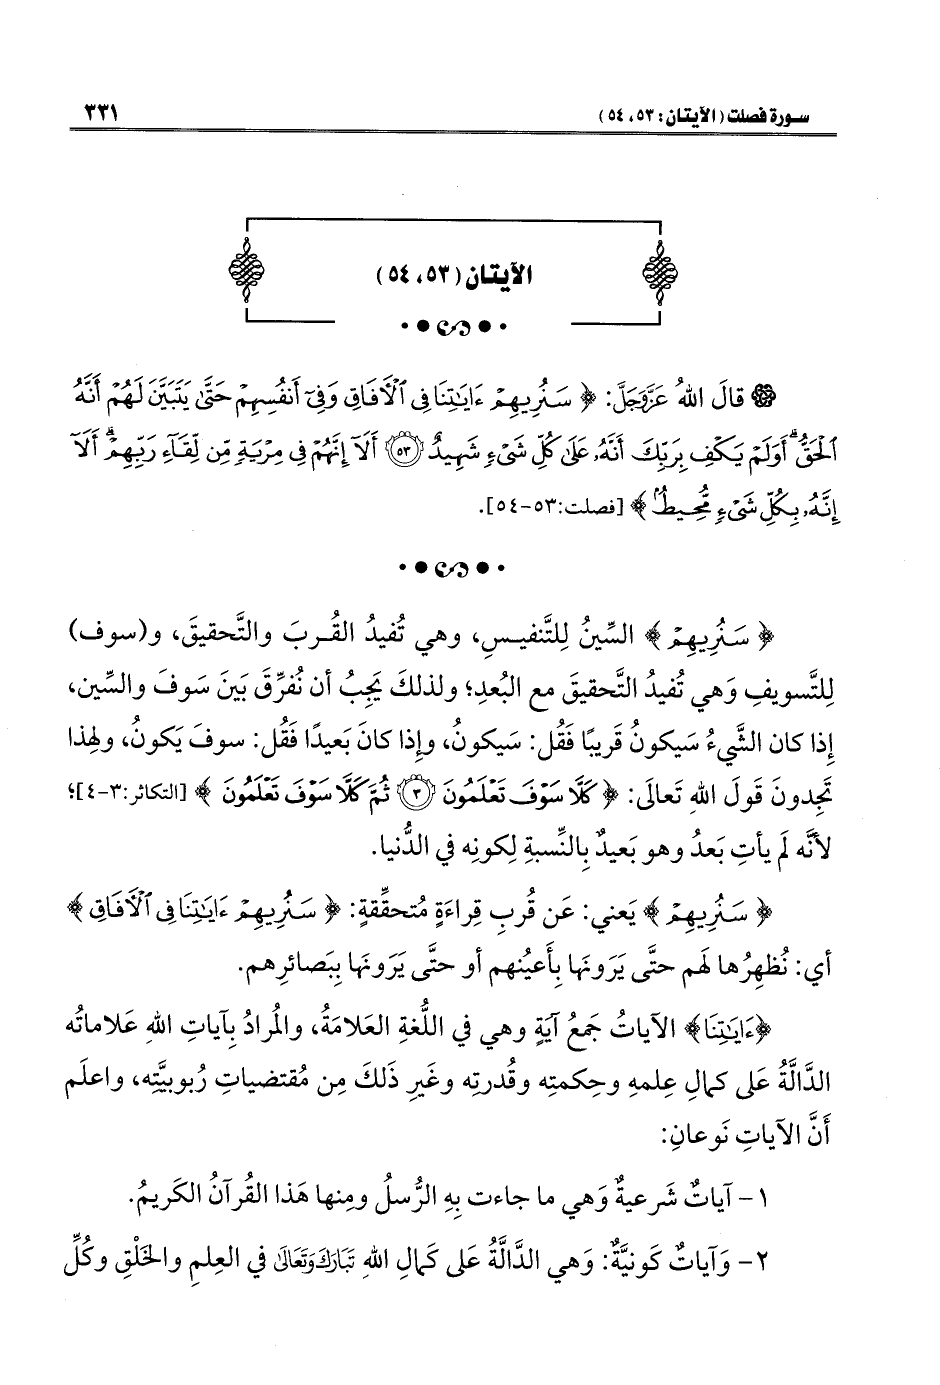 سورة فصلت (الآيتان: ٥٣، ٥٤)
٣٣١
الآيتان (٥٣، ٥٤)
قالَ اللهُ عَزَّوَجَلَّ: ﴿ سَنُرِيهِمْ ءَايَٰتِنَا فِى ٱلْأَفَاقِ وَفِىٓ أَنفُسِهِمْ حَتَّىٰ يَتَبَيَّنَ لَهُمْ أَنَّهُ
ٱلْحَقُّ ۗ أَوَلَمْ يَكْفِ بِرَبِّكَ أَنَّهُۥ عَلَىٰ كُلِّ شَىْءٍ شَهِيدٌ ۝٥٣ أَلَآ إِنَّهُمْ فِى مِرْيَةٍ مِّن لِّقَآءِ رَبِّهِمْ ۗ أَلَآ
إِنَّهُۥ بِكُلِّ شَىْءٍ مُّحِيطٌۢ ﴾ [فصلت:٥٣-٥٤].
﴿ سَنُرِيهِمْ ﴾ السِّينُ لِلتَّنفيسِ، وهي تُفيدُ القُربَ والتَّحقيقَ، و(سوف)
لِلتَّسويفِ وَهي تُفيدُ التَّحقيقَ مع البُعدِ؛ ولذلكَ يَجِبُ أن نُفرِّقَ بَينَ سَوفَ والسِّين،
إذا كان الشَّيءُ سَيكونُ قريبًا فَقُل: سَيكونُ، وإذا كانَ بَعيدًا فَقُل: سوفَ يَكونُ، ولهذا
تَجِدونَ قَولَ اللهِ تَعالَى: ﴿ كَلَّا سَوْفَ تَعْلَمُونَ ۝٣ ثُمَّ كَلَّا سَوْفَ تَعْلَمُونَ ﴾ [التكاثر:٣-٤]؛
لأنَّه لَم يأتِ بَعدُ وهو بَعيدٌ بِالنِّسبةِ لِكونِه في الدُّنيا.
﴿ سَنُرِيهِمْ ﴾ يَعني: عَن قُربٍ قِراءَةٍ مُتحقِّقةٍ: ﴿ سَنُرِيهِمْ ءَايَٰتِنَا فِى ٱلْأَفَاقِ ﴾
أي: نُظهِرُها لهم حتَّى يَرونَها بِأَعيُنِهم أو حتَّى يَرَونَها بِبَصائرِهم.
﴿ءَايَٰتِنَا﴾ الآياتُ جَمعُ آيَةٍ وهي في اللُّغةِ العَلامَةُ، والمُرادُ بِآياتِ اللهِ عَلاماتُه
الدَّالَّةُ عَلى كمالِ عِلمِهِ وحِكمتِه وقُدرتِه وغَيرِ ذَلكَ مِن مُقتضياتِ رُبوبيَّتِه، واعلَم
أنَّ الآياتِ نَوعانِ:
١- آياتٌ شَرعيةٌ وَهي ما جاءت بِهِ الرُّسلُ ومِنها هَذا القُرآنُ الكَريمُ.
٢- وَآياتٌ كَونيَّةٌ: وَهي الدَّالَّةُ عَلى كَمالِ اللهِ تَبَارَكَ وَتَعَالَى في العِلمِ والخَلْقِ وكُلِّ